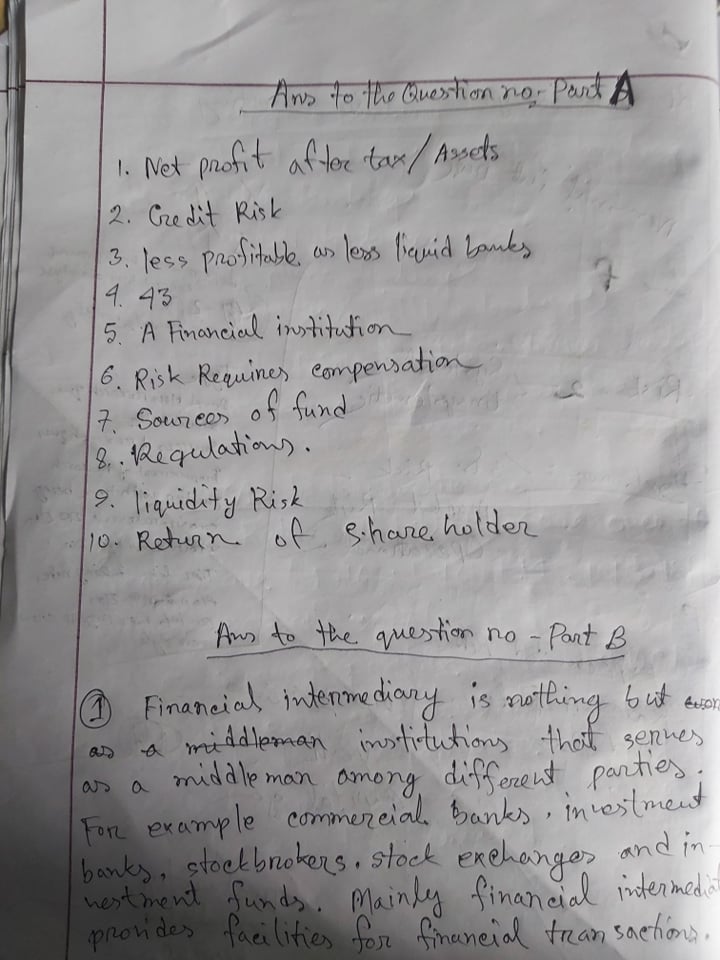 Ans to the Question no - Part A
1. Net profit after tax/Assets
2. Credit Risk
3. less profitable as less liquid banks
4. 43
5. A Financial institution
6. Risk Requires compensation
7. Sources of fund
8. Regulations.
9. liquidity Risk
10. Return of shareholder
Ans to the question no - Part B
① Financial intermediary is nothing but
as a middleman institutions that serves
as a middleman among different parties.
For example commercial banks, investment
banks, stockbrokers, stock exchanges and in-
vestment funds. Mainly financial intermedia
provides facilities for financial transactions.